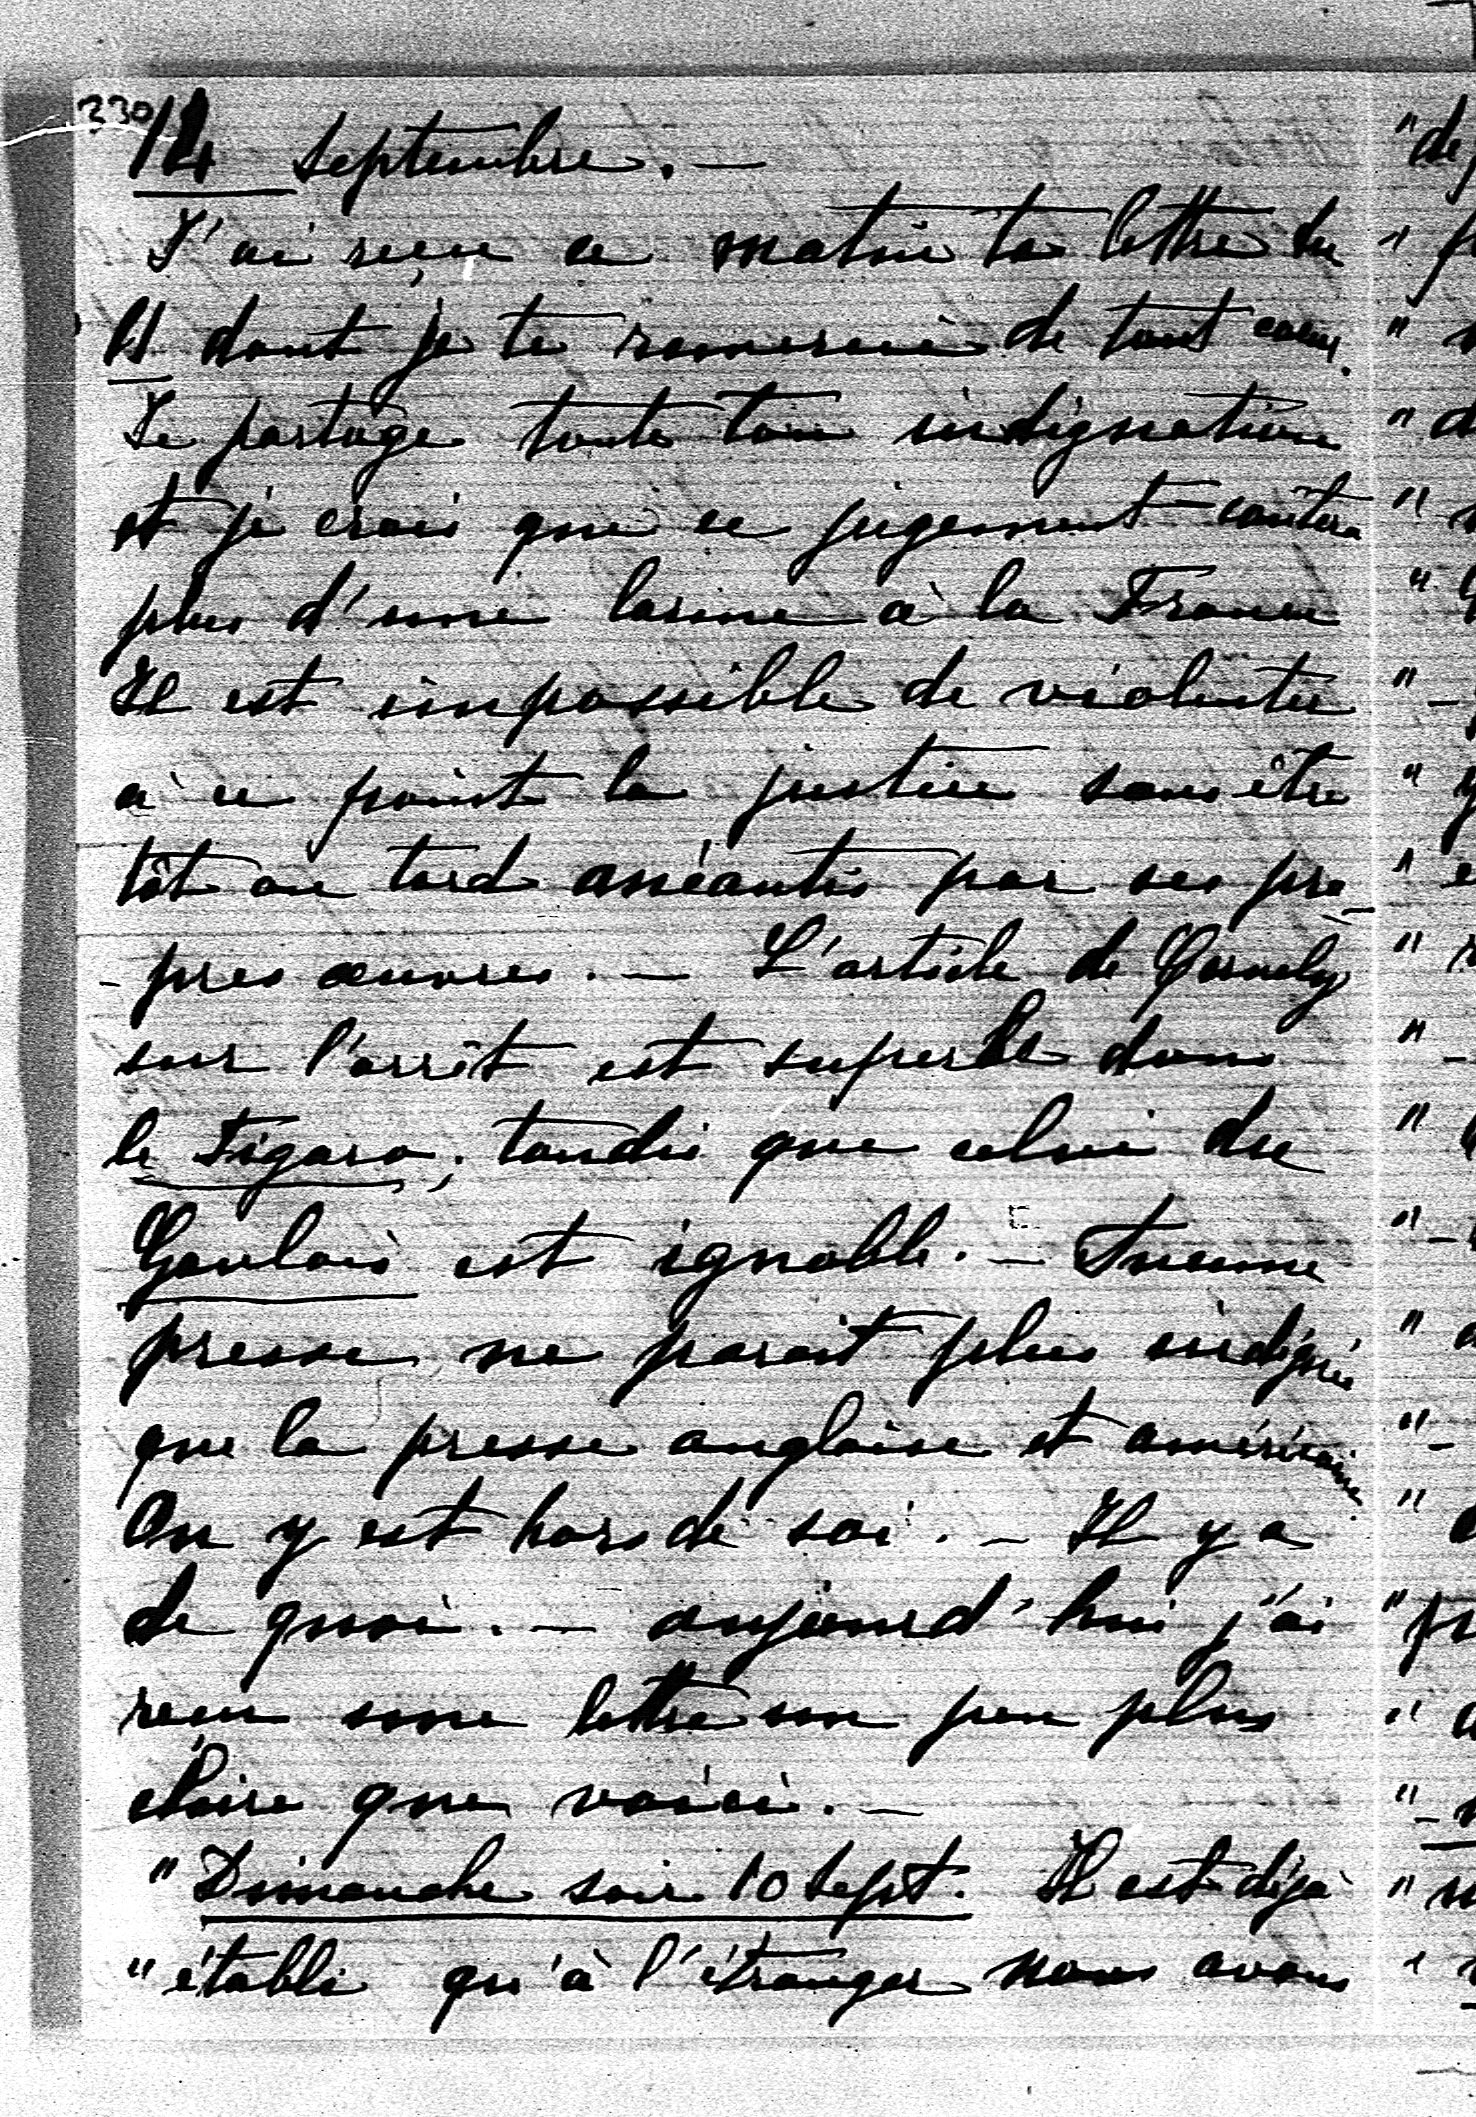 230
14 Septembre. —
J'ai reçu ce matin ta lettre du
dont je te remercie de tout coeur.
Je partage toute ton indignation
et je crois que ce jugement coûtera
plus d'une larme à la France
Il est impossible de violenter
à ce point la justice sans être
tôt ou tard anéantis par ses pro-
- pres œuvres. — L'article de Cornely
sur l'arrêt est superbe dans
le Figaro, tandis que celui du
Gaulois est ignoble. — Aucune
presse ne parait plus indignée
que la presse anglaise et américaine.
On y est hors de soi. — Il y a
de quoi. — aujourd'hui j'ai
reçu une lettre un peu plus
claire que voici. —
" Dimanche soir 10 Sept. Il est déjà
" établi qu'à l'étranger nous avons